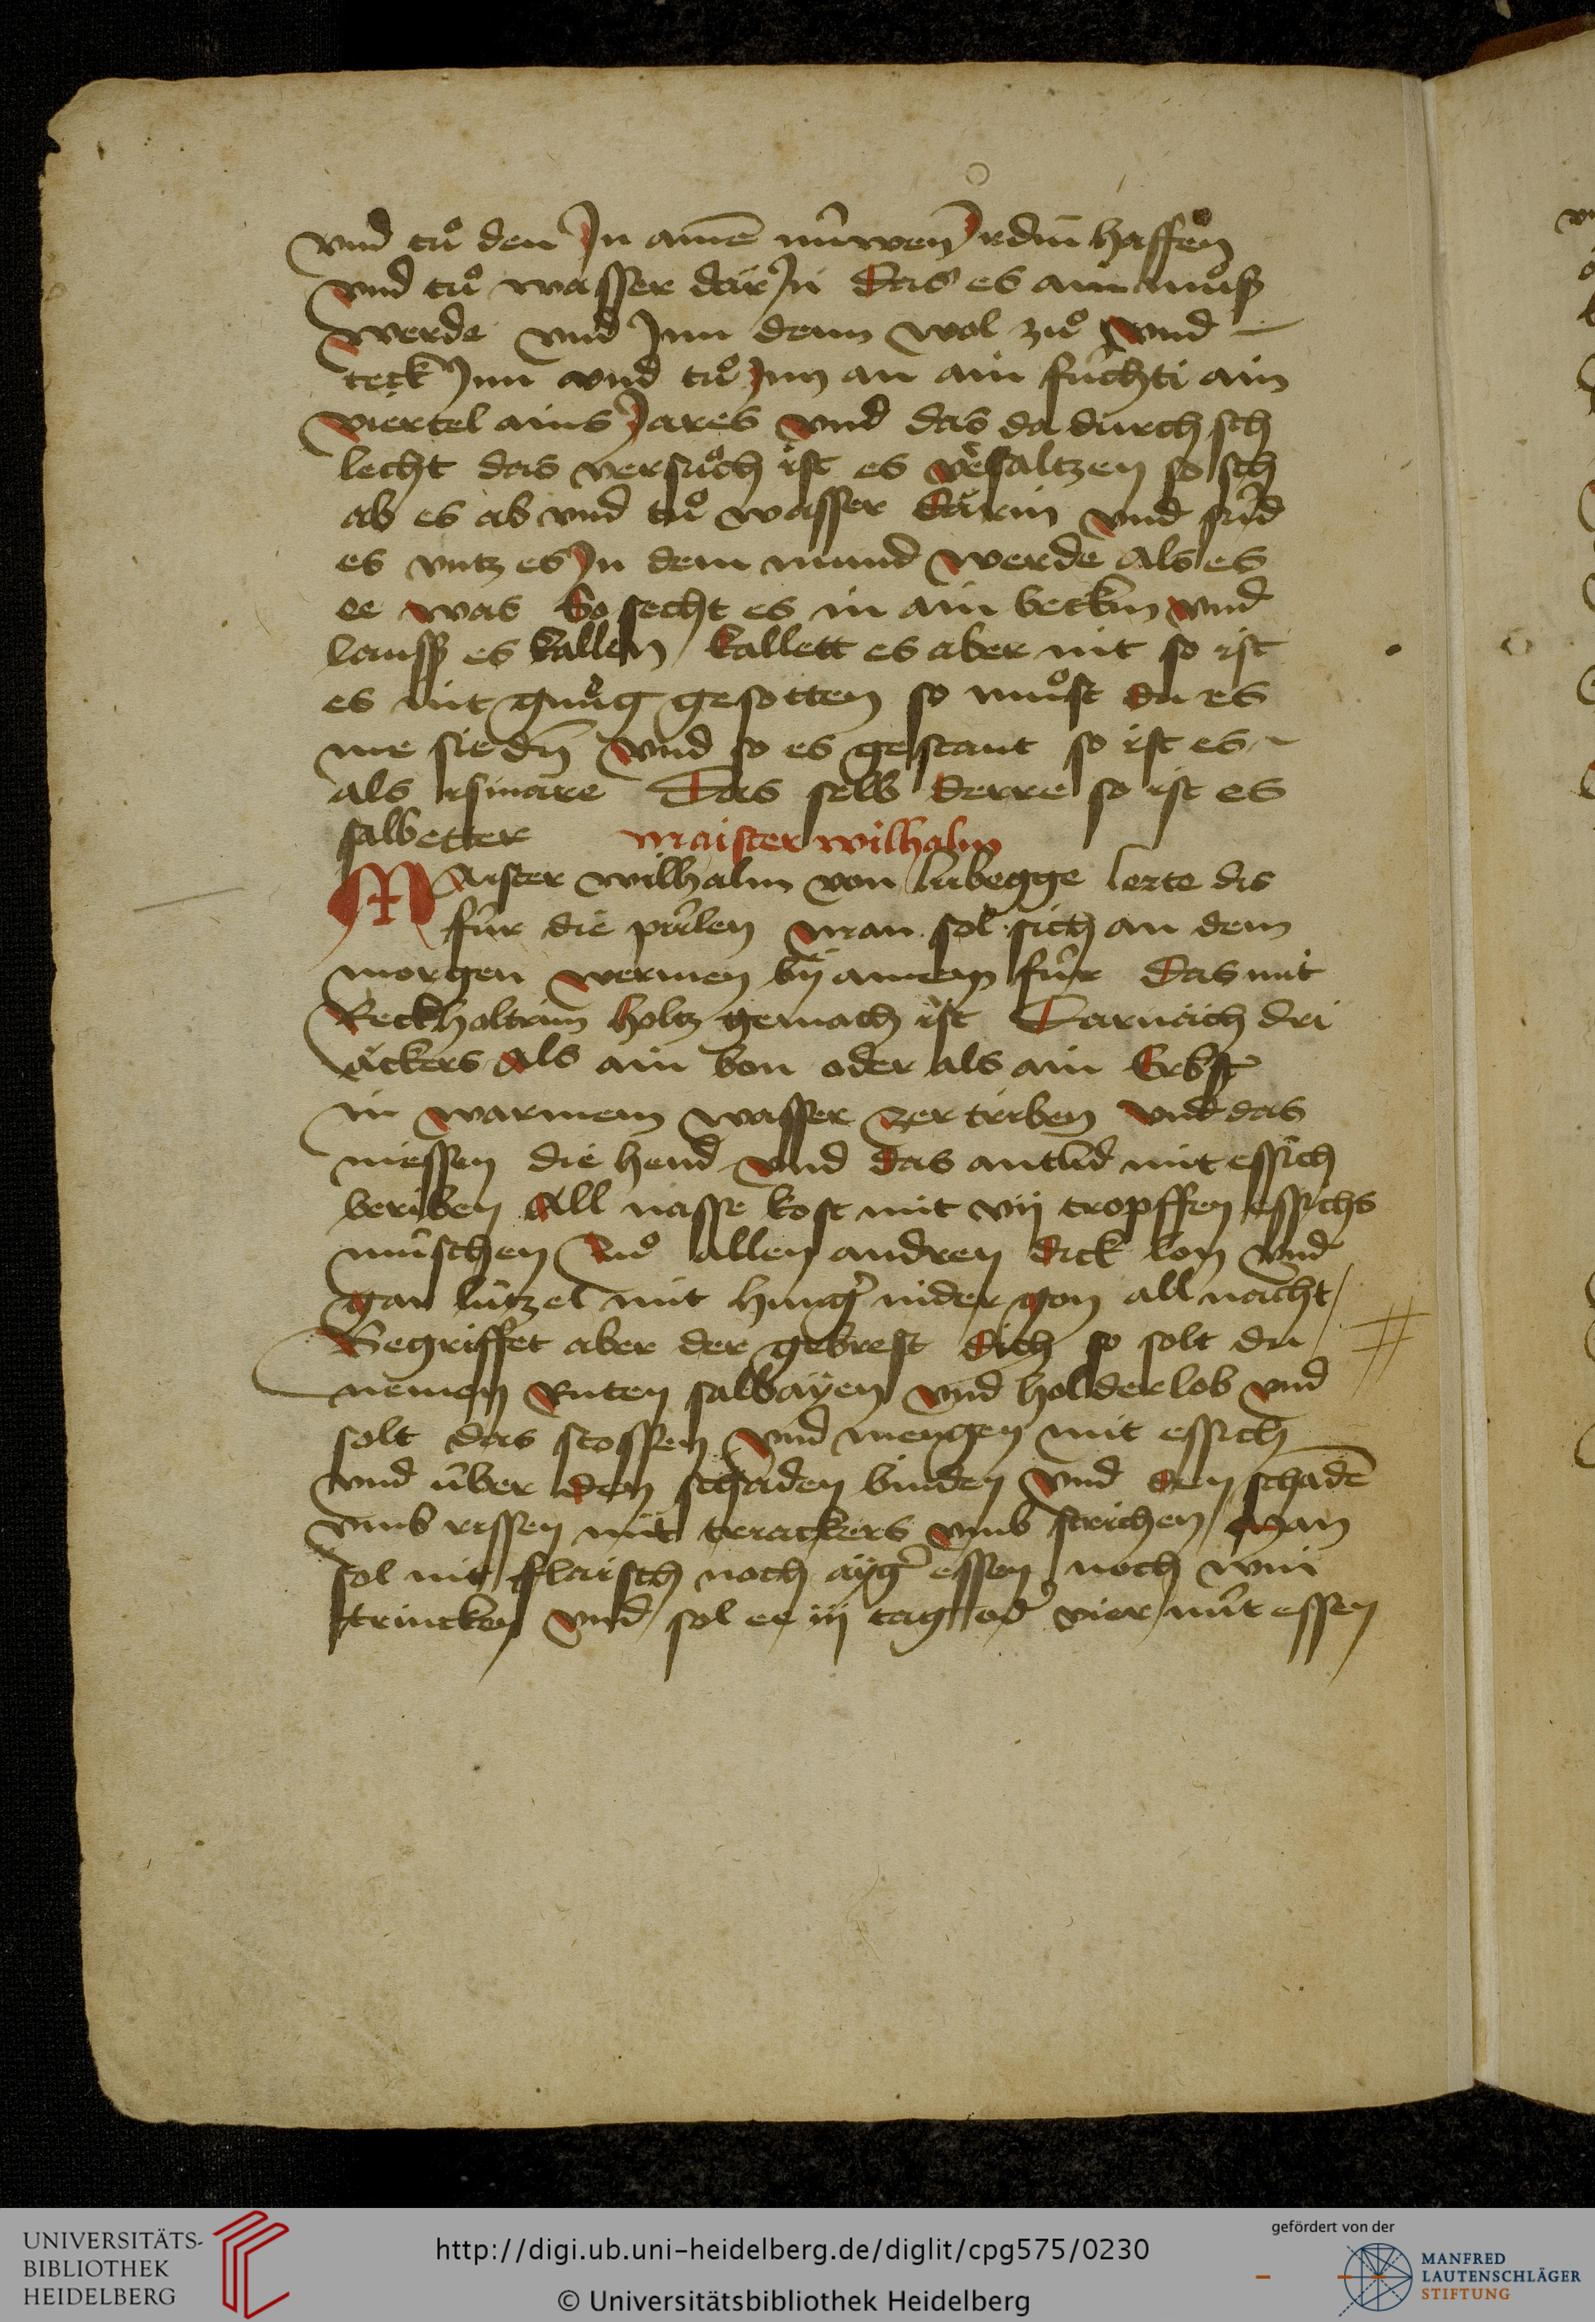 vnd tuͦ den Jn aineͫ nuͥwen Jrdin haffen
vnd tuͦ wasser dar Jn das es ain muͦß
werde vnd Jnn denn wol zuͦ vnd
teck Jnn vnd tuͦ Jnn an ain fuͥchti ain
viertel ains Jares vnd das da durch sch
lecht das versuͦch ist es v̾saltzen so sch
ab es ab vnd tuͦ wasser darin vnd suͥd
es vntz es Jn dem mund werde als es
ee was So secht es in ain beckin vnd
lauss es kallen / kallett es aber nit so ist
es nit gnuͦg gesotten so muͦst du es
me siedn̄ vnd so es gestant so ist es
als ysmare Das selb derre so ist es
salbetter maister wilhalm
Maister wilhalm von luͥbegge lerte dis
fuͥr die puͥlen man sol sich an dem
morgen wermen bÿ ainem fuͥr das mit
Reckholtrim holtz gemach ist Darnaͤch dri
aͤckers als ain bon oder als ain Erbss
in warmem wasser zertriben vnd das
niessen die hend vnd das antlid mit essich
beriben All nasse kost mit vij tropffen essichs
muͥschen Zuͦ allen andren dick lon vnd
gar luͥtzel mit hung̾ nider gon all nacht /
Begriffet aber der gebrest dich so solt du /
nemen Ruten salbaÿen vnd holderlob vnd
solt das stossen vnd mengen mit essich
vnd uͥber den schaden binden vnd den schadē
vmb rissen mit triackers vmb strichen / man
sol nit flaisch noch aÿg̾ essen noch win
trincken vnd sol ee iij tag od̾ vier nuͥt essen
UNIVERSITÄTS-
BIBLIOTHEK
HEIDELBERG
http://digi.ub.uni-heidelberg.de/diglit/cpg575/0230
© Universitätsbibliothek Heidelberg
gefördert von der
MANFRED
LAUTENSCHLÄGER
STIFTUNG